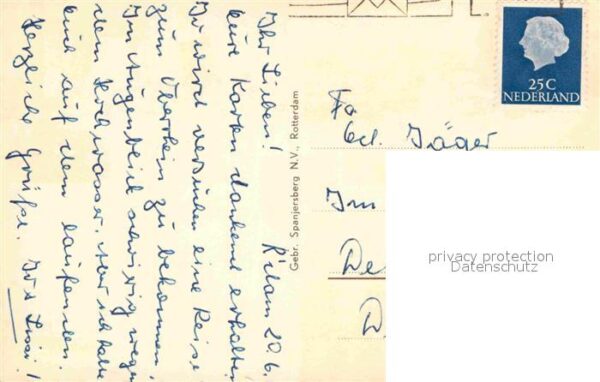 R'dam 20.6.
Ihr Lieben!
Eure Karten dankend erhalten
Ir wird versuchen eine Reise
zum Oberrhein zu bekommen.
Im Augenblick schwierig wegen
dem Hochwasser. Aber ich halte
auf dem laufenden.
Herzliche Grüße.
Gebr. Spanjersberg N.V., Rotterdam
25 C
NEDERLAND
Fa
Ed. Jäger
Im
De
D
privacy protection
Datenschutz